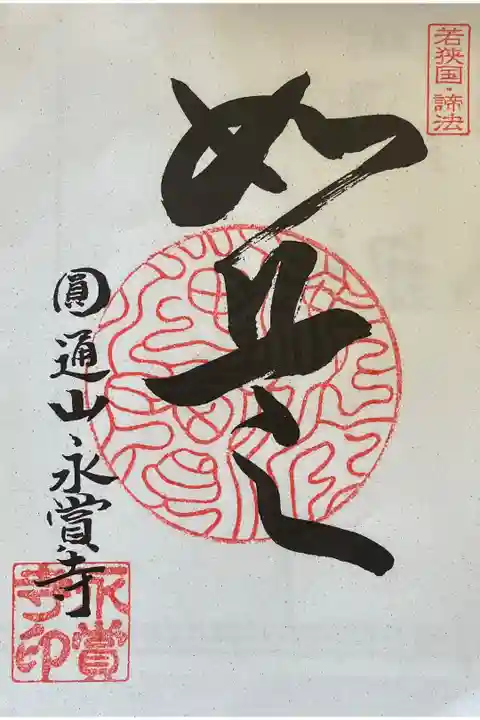 若狭国・諦法
如是
圓通山
永賞寺
永賞
寺印